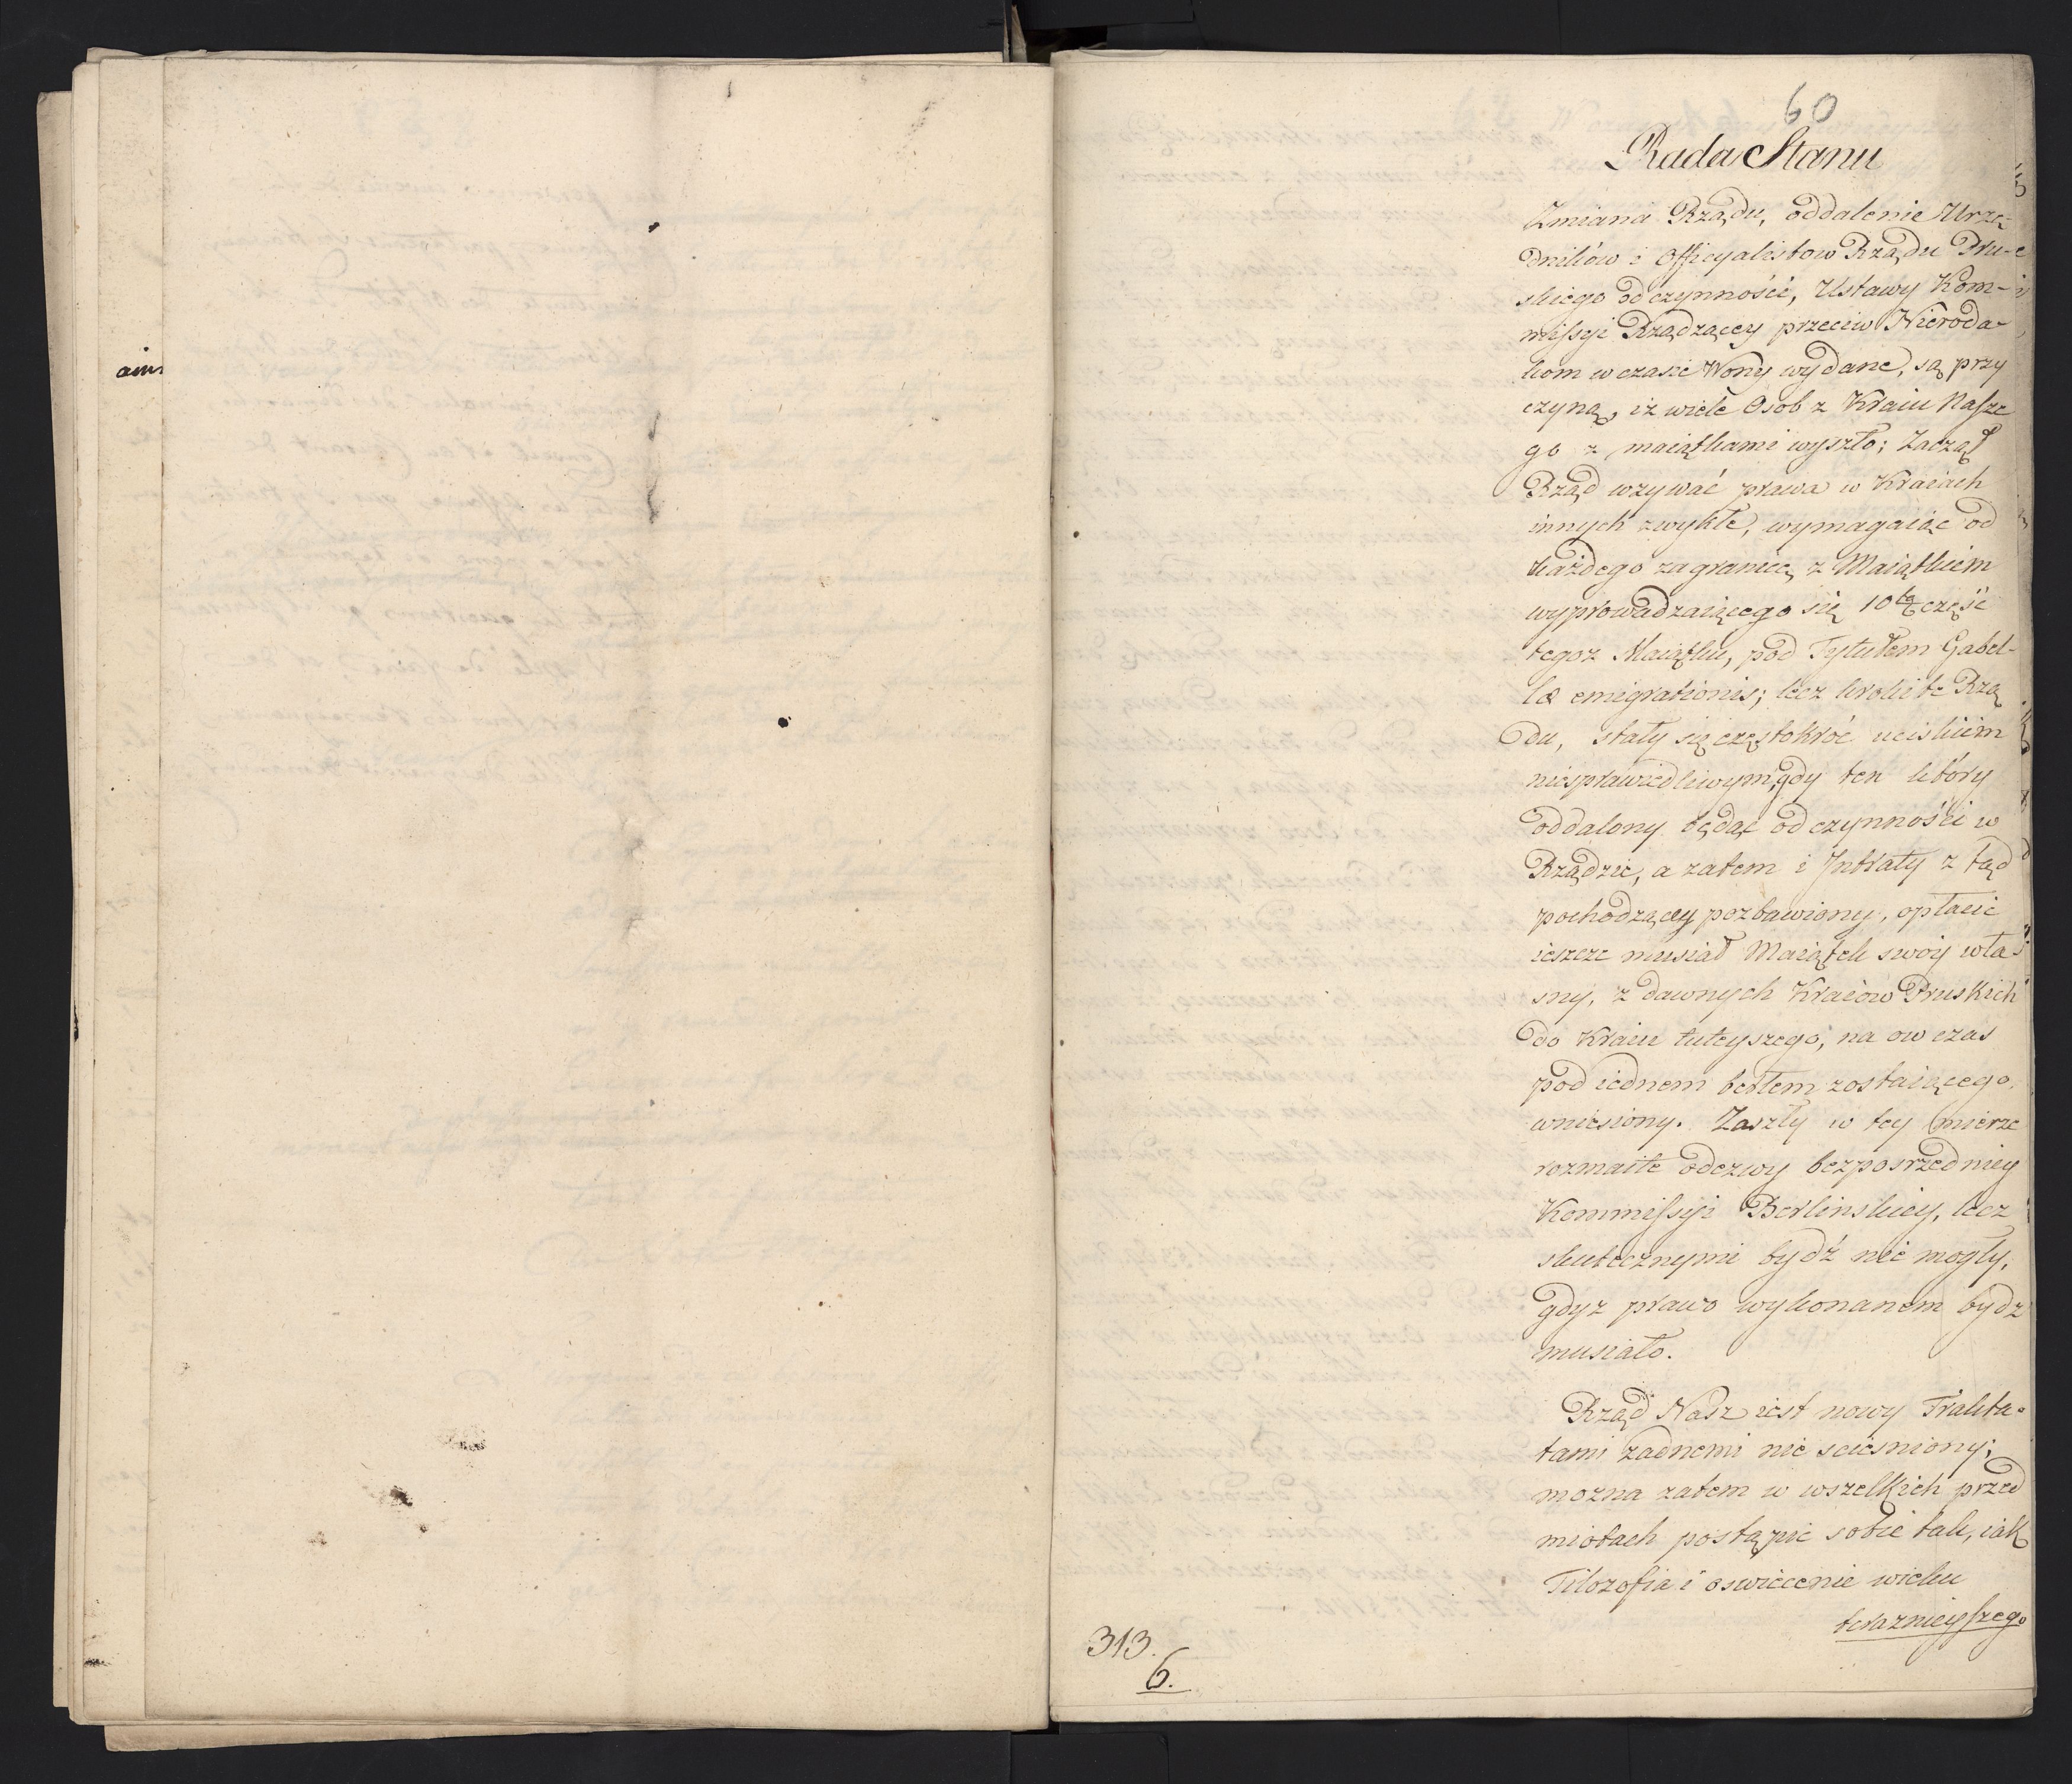 aim
60
Rada Stanu
Zmiana Rządu, oddalenie Urzę-
dników i Officyalistow Rządu Pru-
skiego od czynności, Ustawy Kom-
missyi Rządzącey przeciw Nieroda-
kom w czasie Wony wydane, są przy
czyną, iż wiele Osob z Kraiu Nasze
go z maiątkami wyszło; Zaczął
Rząd wzywać prawa w Kraiach
innych zwykłe, wymagaiąc od
każdego zagranicę z Maiątkiem
wyprowadzaiącego się 10tą część
tegoz Maiątku, pod Tytułem Gabel-
læ emigrationis; lecz kroki te Rzą
du, stały się częstokróć uciskiem
niesprawiedliwym, gdy ten który
oddalony będąc od czynności w
Rządzie, a zatem i Intraty z tąd
pochodzącey pozbawiony, opłacic
ieszcze musiał Maiątek swóy wła
sny, z dawnych Kraiów Pruskich
do Kraiu tuteyszego, na ow czas
pod iednem berłem zostaiącego,
wniesiony. Zaszły w tey mierze
rozmaite odezwy bezposrzedniey
Kommissyi Berlinskiey, lecz
skutecznymi bydź nie mogły,
gdyz prawo wykonanem bydz
musiało.
Rząd Nasz iest nowy Trakta-
tami żadnemi nie scieśniony;
mozna zatem w wszelkich przed
miotach postąpic sobie tak, iak
Filozofia i oswiecenie wieku
teraznieyszego
313.
6.